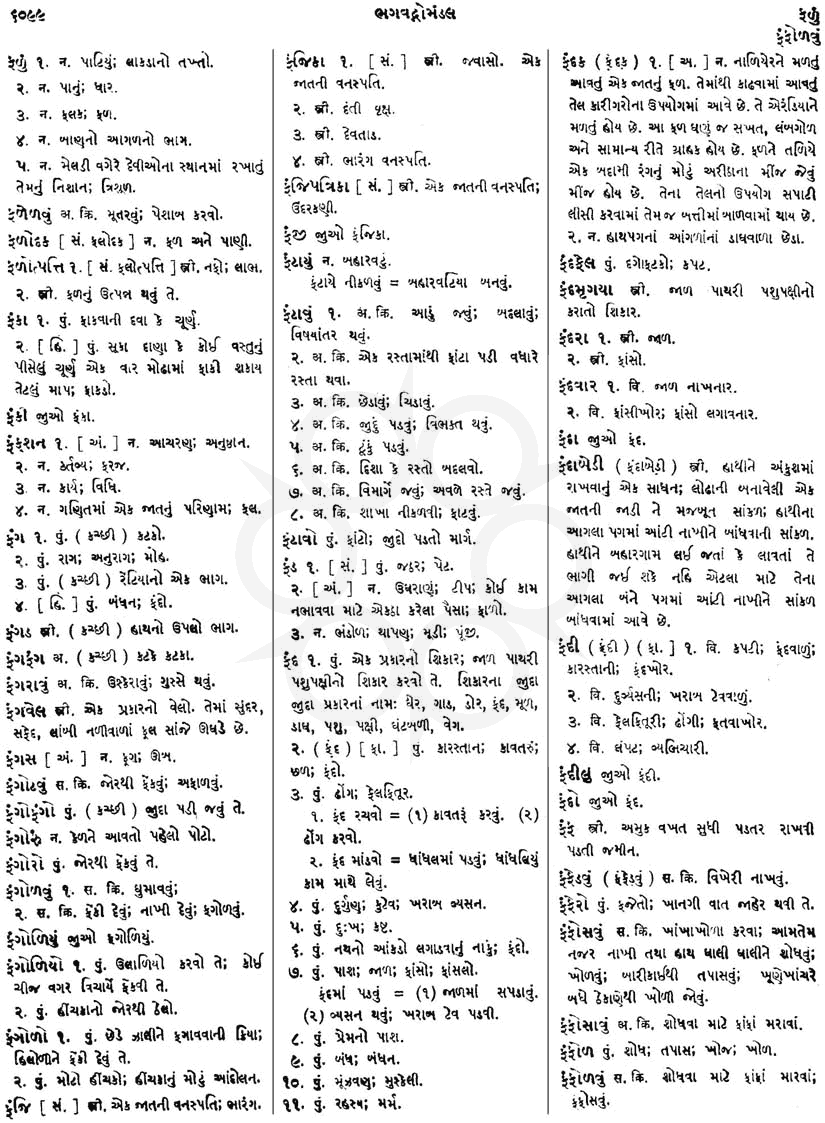 ૬૦૯૯
ભગવદ્ગોમંડલ
ફળું
ફંફોળવું
ફળું ૧. ન. પાટિયું; લાકડાનો તખ્તો.
૨. ન. પાનું; ધાર.
૩. ન. ફલક; ફળ.
૪. ન. બાણુનો આગળનો ભાગ.
૫. ન. મેલડી વગેરે દેવીઓના સ્થાનમાં રખાતું
તેમનું નિશાન; ત્રિશૂળ.
ફળોળવું અ. ક્રિ. મૂતરવું; પેશાબ કરવો.
ફળોદક [ સં. ફલોદક ] ન. ફળ અને પાણી.
ફળોત્પત્તિ ૧. [ સં. ફલોત્પત્તિ ] સ્ત્રી. નફો; લાભ.
૨. સ્ત્રી. ફળનું ઉત્પન્ન થવું તે.
ફંકા ૧. પું. ફાકવાની દવા કે ચૂર્ણ.
૨. [ હિ. ] પું. સૂકા દાણા કે કોઈ વસ્તુનું
પીસેલું ચૂર્ણ એક વાર મોઢામાં ફાકી શકાય
તેટલું માપ; ફાકડો.
ફંકી જુઓ ફંકા.
ફંક્શન ૧. [ અં. ] ન. આચરણ; અનુષ્ઠાન.
૨. ન. કર્તવ્ય; ફરજ.
૩. ન. કાર્ય; વિધિ.
૪. ન. ગણિતમાં એક જાતનું પરિણામ; ફલ.
ફંગ ૧. પું. ( કચ્છી ) કટકો.
૨. પું. રાગ; અનુરાગ; મોહ.
૩. પું. ( કચ્છી ) રેંટિયાનો એક ભાગ.
૪. [ હિ. ] પું. બંધન; ફંદો.
ફંગડ સ્ત્રી. ( કચ્છી ) હાથનો ઉપલો ભાગ.
ફંગફંગ અ. ( કચ્છી ) કટકે કટકા.
ફંગરાવું અ. ક્રિ. ઉશ્કેરાવું; ગુસ્સે થવું.
ફંગવેલ સ્ત્રી. એક પ્રકારનો વેલો. તેમાં સુંદર,
સફેદ, લાંબી નળીવાળાં ફૂલ સાંજે ઊઘડે છે.
ફંગસ [ અં. ] ન. ફૂગ; ઊબ.
ફંગોટવું સ. ક્રિ. જોરથી ફેંકવું; અફાળવું.
ફંગોફંગો પું. ( કચ્છી ) જુદા પડી જવું તે.
ફંગોરું ન. કેળને આવતો પહેલો પોટો.
ફંગોરો પું. જોરથી ફેંકવું તે.
ફંગોળવું ૧. સ. ક્રિ. ઘુમાવવું;
૨. સ. ક્રિ. ફેંકી દેવું; નાખી દેવું; ફગોળવું.
ફંગોળિયું જુઓ ફગોળિયું.
ફંગોળિયો ૧. પું. ઉલાળિયો કરવો તે; કોઈ
ચીજ વગર વિચાર્યે ફેંકવી તે.
૨. પું. હીંચકાનો જોરથી ઠેલો.
ફંગોળો ૧. પું. છેડે ઝાલીને ફગાવવાની ક્રિયા;
હિલોળીને ફેંકી દેવું તે.
૨. પું. મોટો હીંચકો; હીંચકાનું મોટું આંદોલન.
ફંજિ [ સં. ] સ્ત્રી. એક જાતની વનસ્પતિ; ભારંગ.
ફંજિકા ૧. [ સં. ] સ્ત્રી. જવાસો. એક
જાતની વનસ્પતિ.
૨. સ્ત્રી. દંતી વૃક્ષ.
૩. સ્ત્રી. દેવતાડ.
૪. સ્ત્રી. ભારંગ વનસ્પતિ.
ફંજિપત્રિકા [ સં. ] સ્ત્રી. એક જાતની વનસ્પતિ;
ઉંદરકણી.
ફંજી જુઓ ફંજિકા.
ફંટાયું ન. બહારવટું.
ફંટાયે નીકળવું = બહારવટિયા બનવું.
ફંટાવું ૧. અ. ક્રિ. આડું જવું; બદલાવું;
વિષયાંતર થવું.
૨. અ. ક્રિ. એક રસ્તામાંથી ફાંટા પડી વધારે
રસ્તા થવા.
૩. અ. ક્રિ. છેડાવું; ચિડાવું.
૪. અ. ક્રિ. જુદું પડવું; વિભક્ત થવું.
૫. અ. ક્રિ. ટૂંકું પડવું.
૬. અ. ક્રિ. દિશા કે રસ્તો બદલવો.
૭. અ. ક્રિ. વિમાર્ગે જવું; અવળે રસ્તે જવું.
૮. અ. ક્રિ. શાખા નીકળવી; ફાટવું.
ફંટાવો પું. ફાંટો; જુદો પડતો માર્ગ.
ફંડ ૧. [ સં. ] પું. જઠર; પેટ.
૨. [ અં. ] ન. ઉઘરાણું; ટીપ; કોઈ કામ
નભાવવા માટે એકઠા કરેલા પૈસા; ફાળો.
૩. ન. ભંડોળ; થાપણ; મૂડી; પૂંજી.
ફંદ ૧. પું. એક પ્રકારનો શિકાર; જાળ પાથરી
પશુપક્ષીનો શિકાર કરવો તે. શિકારના જુદા
જુદા પ્રકારનાં નામ: ઘેર, ગાડ, ડોર, ફંદ, મૂળ,
ડાધ, પશુ, પક્ષી, ઘંટબળી, વેગ.
૨. ( ફંદ ) [ ફા. ] પું. કારસ્તાન; કાવતરું;
છળ; ફંદો.
૩. પું. ઢોંગ; ફેલફિતૂર.
૧. ફંદ રચવો = (૧) કાવતરું કરવું. (૨)
ઢોંગ કરવો.
૨. ફંદ માંડવો = ધાંધલમાં પડવું; ધાંધલિયું
કામ માથે લેવું.
૪. પું. દુર્ગુણ; કુટેવ; ખરાબ વ્યસન.
૫. પું. દુઃખ; કષ્ટ.
૬. પું. નથનો આંકડો લગાડવાનું નાકું; ફંદો.
૭. પું. પાશ; જાળ; ફાંસો; ફાંસલો.
ફંદમાં પડવું = (૧) જાળમાં સપડાવું.
(૨) વ્યસન થવું; ખરાબ ટેવ પડવી.
૮. પું. પ્રેમનો પાશ.
૯. પું. બંધ; બંધન.
૧૦. પું. મૂંઝવણ; મુશ્કેલી.
૧૧. પું. રહસ્ય; મર્મ.
ફંદક ( ફંદક ) ૧. [ અ. ] ન. નાળિયેરને મળતું
આવતું એક જાતનું ફળ. તેમાંથી કાઢવામાં આવતું
તેલ કારીગરોના ઉપયોગમાં આવે છે. તે એરંડિયાને
મળતું હોય છે. આ ફળ ઘણું જ સખત, લંબગોળ
અને સામાન્ય રીતે ગ્રાહક હોય છે. ફળને તળિયે
એક બદામી રંગનું મોટું અરીઠાના મીંજ જેવું
મીંજ હોય છે. તેના તેલનો ઉપયોગ સપાટી
લીસી કરવામાં તેમ જ બત્તીમાં બાળવામાં થાય છે.
૨. ન. હાથપગનાં આંગળાંનાં ડાઘવાળા છેડા.
ફંદફેલ પું. દગોફટકો; કપટ.
ફંદમૃગયા સ્ત્રી. જાળ પાથરી પશુપક્ષીનો
કરાતો શિકાર.
ફંદરા ૧. સ્ત્રી. જાળ.
૨. સ્ત્રી. ફાંસો.
ફંદવાર ૧. વિ. જાળ નાખનાર.
૨. વિ. ફાંસીખોર; ફાંસો લગાવનાર.
ફંદા જુઓ ફંદ.
ફંદાબેડી ( ફંદાબેડી ) સ્ત્રી. હાથીને અંકુશમાં
રાખવાનું એક સાધન; લોઢાની બનાવેલી એક
જાતની જાડી ને મજબૂત સાંકળ; હાથીના
આગલા પગમાં આંટી નાખીને બાંધવાની સાંકળ.
હાથીને બહારગામ લઈ જતાં કે લાવતાં તે
ભાગી જઈ શકે નહિ એટલા માટે તેના
આગલા બંને પગમાં આંટી નાખીને સાંકળ
બાંધવામાં આવે છે.
ફંદી ( ફંદી ) [ ફા. ] ૧. વિ. કપટી; ફંદવાળું;
કારસ્તાની; ફંદખોર.
૨. વિ. દુર્વ્યસની; ખરાબ ટેવવાળું.
૩. વિ. ફેલફિતૂરી; ઢોંગી; ફતવાખોર.
૪. વિ. લંપટ; વ્યભિચારી.
ફંદીલું જુઓ ફંદી.
ફંદો જુઓ ફંદ.
ફંફ સ્ત્રી. અમુક વખત સુધી પડતર રાખવી
પડતી જમીન.
ફંફેડવું ( ફંફેડવું ) સ. ક્રિ. વિખેરી નાખવું.
ફંફેરો પું. ફજેતો; ખાનગી વાત જાહેર થવી તે.
ફંફોસવું સ. ક્રિ. ખાંખાખોળા કરવા; આમતેમ
નજર નાખી તથા હાથ ઘાલી ઘાલીને શોધવું;
ખોળવું; બારીકાઈથી તપાસવું; ખૂણેખાંચરે
બધે ઠેકાણેથી ખોળી જોવું.
ફંફોસાવું અ. ક્રિ. શોધવા માટે ફાંફાં મરાવાં.
ફંફોળ પું. શોધ; તપાસ; ખોજ; ખોળ.
ફંફોળવું સ. ક્રિ. શોધવા માટે ફાંફાં મારવાં;
ફંફોસવું.